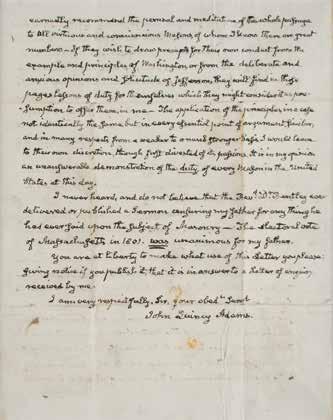 earnestly recommend the perusal and meditation of the whole passage
to all virtuous and conscientious Masons, of whom I know there are great
numbers — If they wish to draw precepts for their own conduct from the
example and principles of Washington or from the deliberate and
anxious opinions and solicitude of Jefferson, they will find in those
pages lessons of duty for themselves which they might consider it as pre-
sumption to offer them, in me — The application of the principles, in a case
not identically the same but in every essential point of argument similar,
and in many respects from a weaker to a much stronger basis, I would leave
to their own discretion, though first divested of its passions. It is in my opinion
an unanswerable demonstration of the duty of every Mason in the United
States at this day.
I never heard, and do not believe that the Revd. Dr. Bentley ever
delivered or published a Sermon censuring my father for any thing he
has ever said upon the subject of Masonry — The electoral vote
of Massachusetts in 1801. was unanimous for my father.
You are at liberty to make what use of this Letter you please:
giving notice if you publish it, that it is in answer to a Letter of enquiry
received by me.
I am very respectfully, Sir, your obedt. Servt
John Quincy Adams.